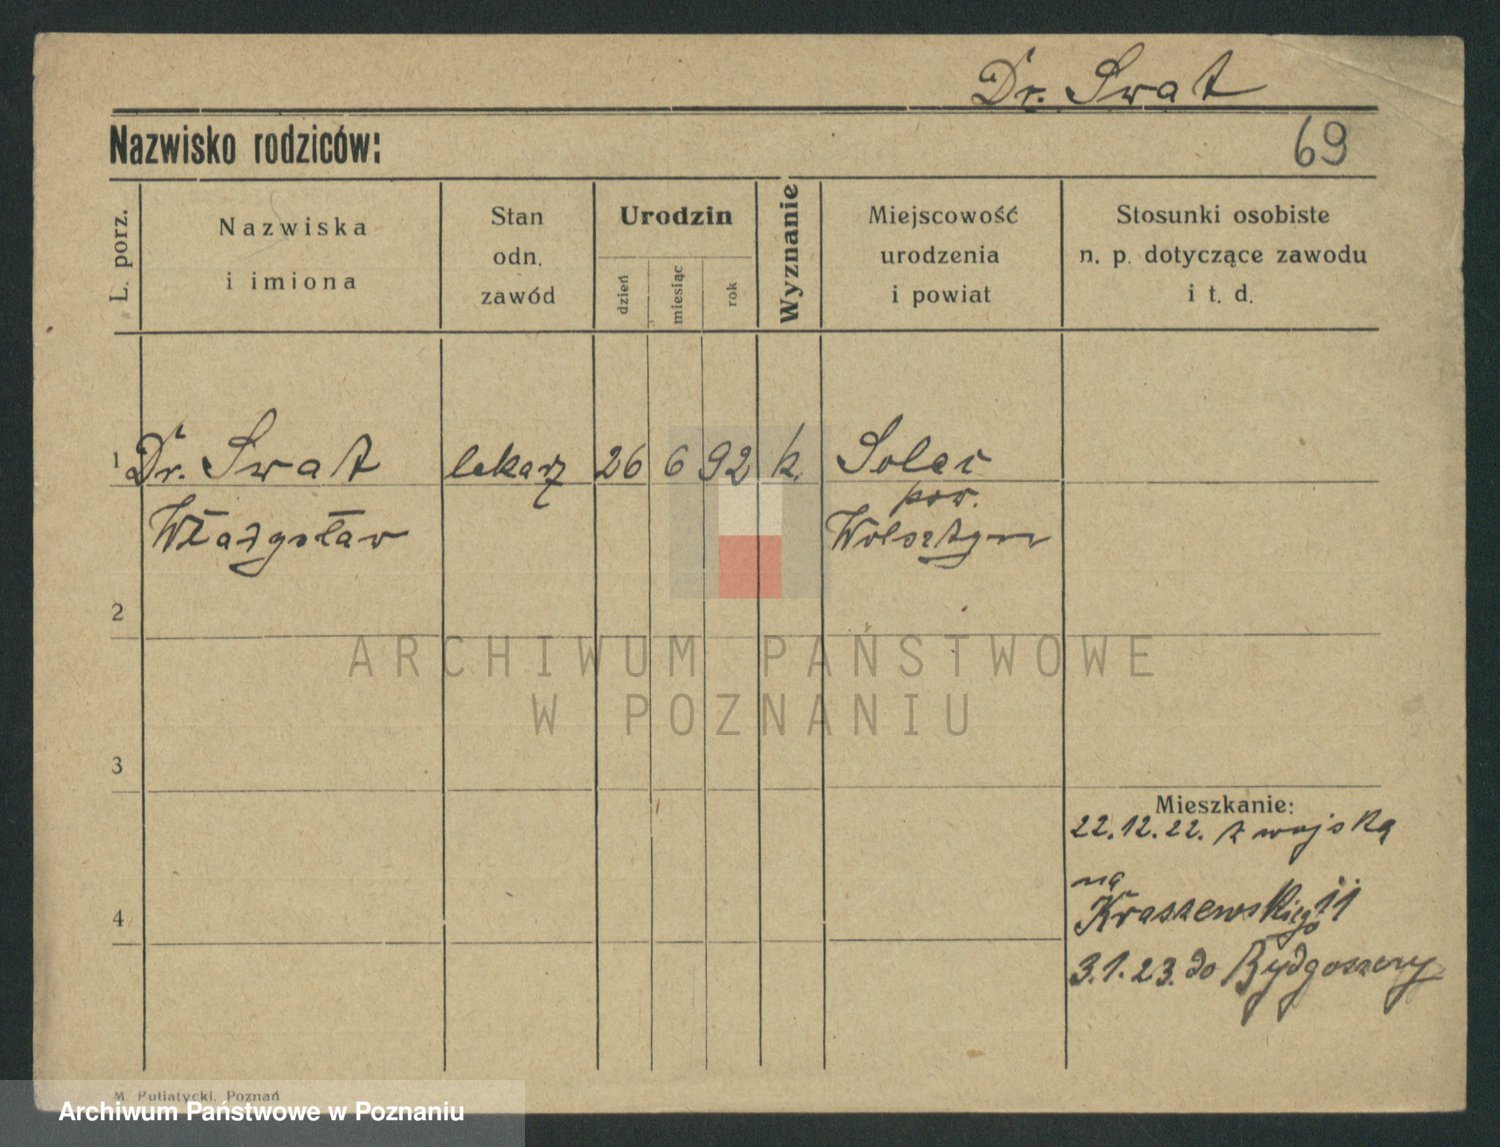 Dr. Swat
Nazwisko rodziców:
69
L. porz.
Nazwiska
i imiona
Stan
odn.
zawód
Urodzin
dzień
miesiąc
rok
Wyznanie
Miejscowość
urodzenia
i powiat
Stosunki osobiste
n. p. dotyczące zawodu
i t. d.
1 Dr. Swat lekarz 26 6 92 k. Solec
pow.
Władysław Wolsztyn
2
ARCHIWUM PAŃSTWOWE
W POZNANIU
3
Mieszkanie:
22.12.22. z wojska
na
4 Kraszewskiego 11
3.1.23. do Bydgoszczy
M. Putiatycki, Poznań
Archiwum Państwowe w Poznaniu